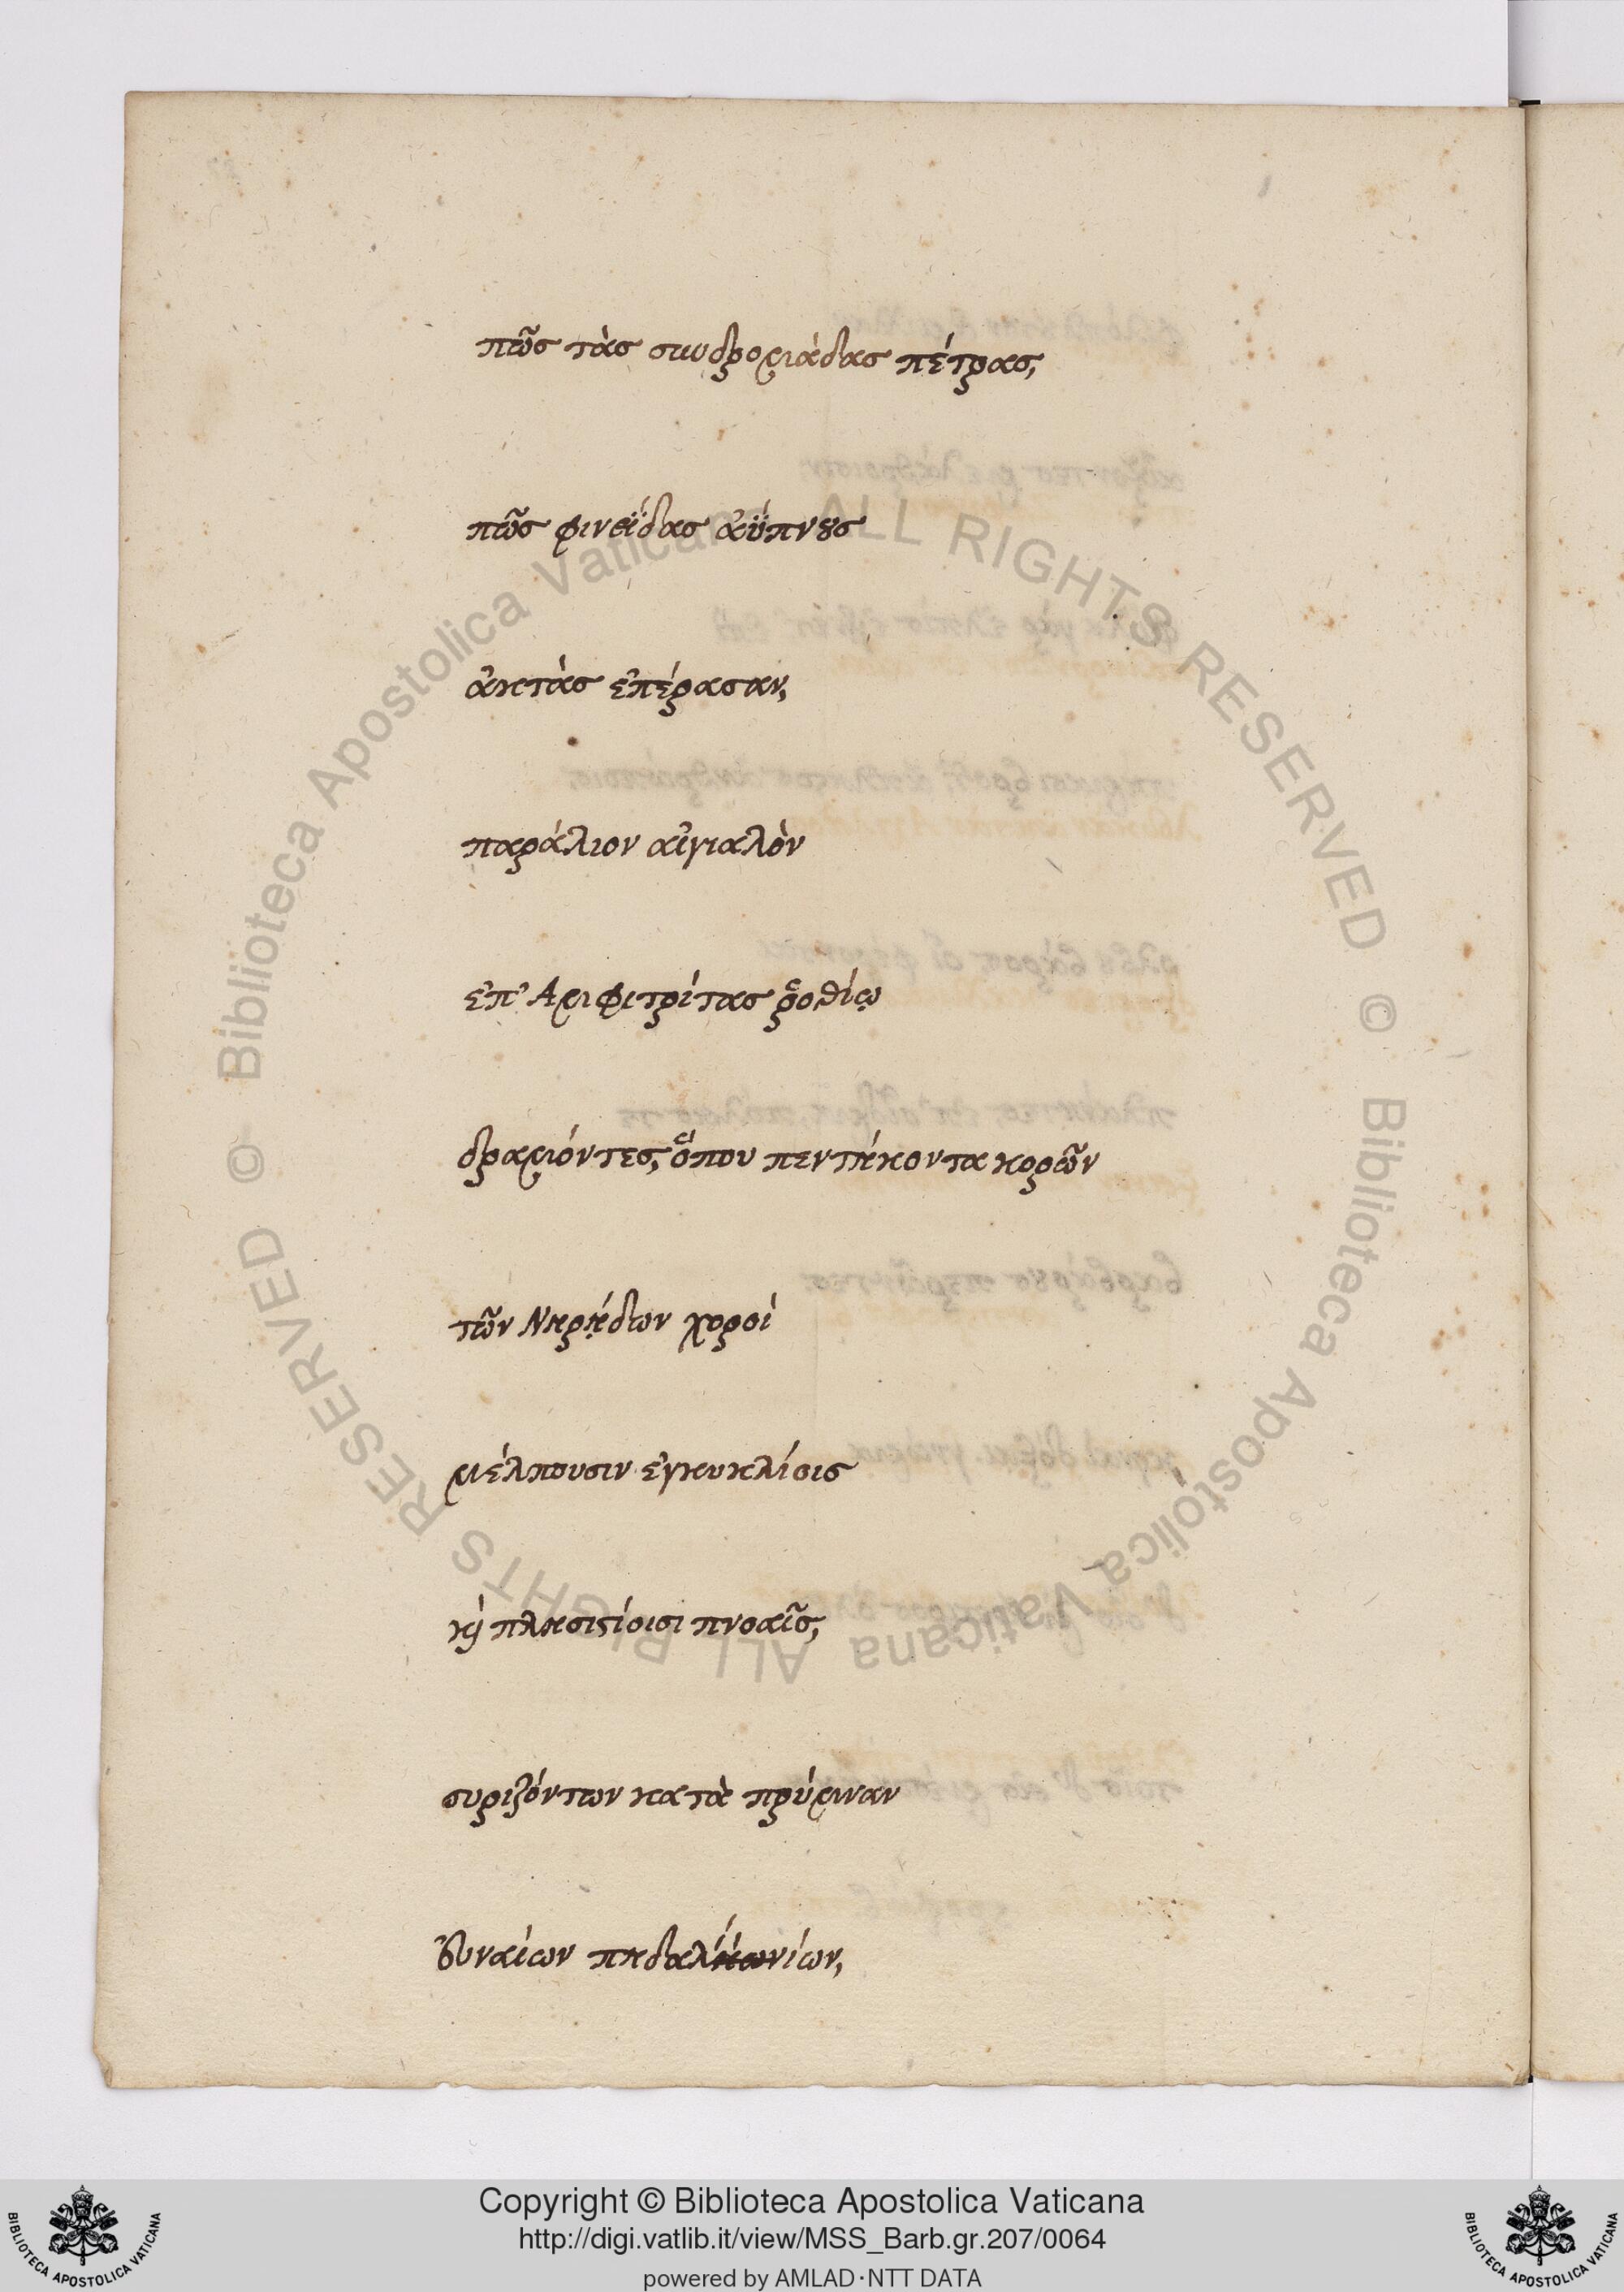 πῶς τὰς συνδρομάδας πέτρας,
πῶς φινεΐδας ἀΰπνȣς
ἀκτὰς ἐπέρασαν,
παράλιον αἰγιαλὸν
ἐπ' Ἀμφιτρίτας ῥοθίῳ
δραμόντες, ὅπου πεντήκοντα κορῶν
τῶν Νηρῄδων χοροὶ
μέλπουσιν ἐγκυκλίοις
κὶ πλησιςίοισι πνοαῖς,
συριζόντων κατὰ πρύμναν
ἐυναίων πηδαλίων,
Copyright © Biblioteca Apostolica Vaticana
http://digi.vatlib.it/view/MSS_Barb.gr.207/0064
powered by AMLAD·NTT DATA
Biblioteca Apostolica Vaticana ALL RIGHTS RESERVED ©
Biblioteca Apostolica Vaticana ALL RIGHTS RESERVED ©
BIBLIOTECA APOSTOLICA VATICANA
BIBLIOTECA APOSTOLICA VATICANA